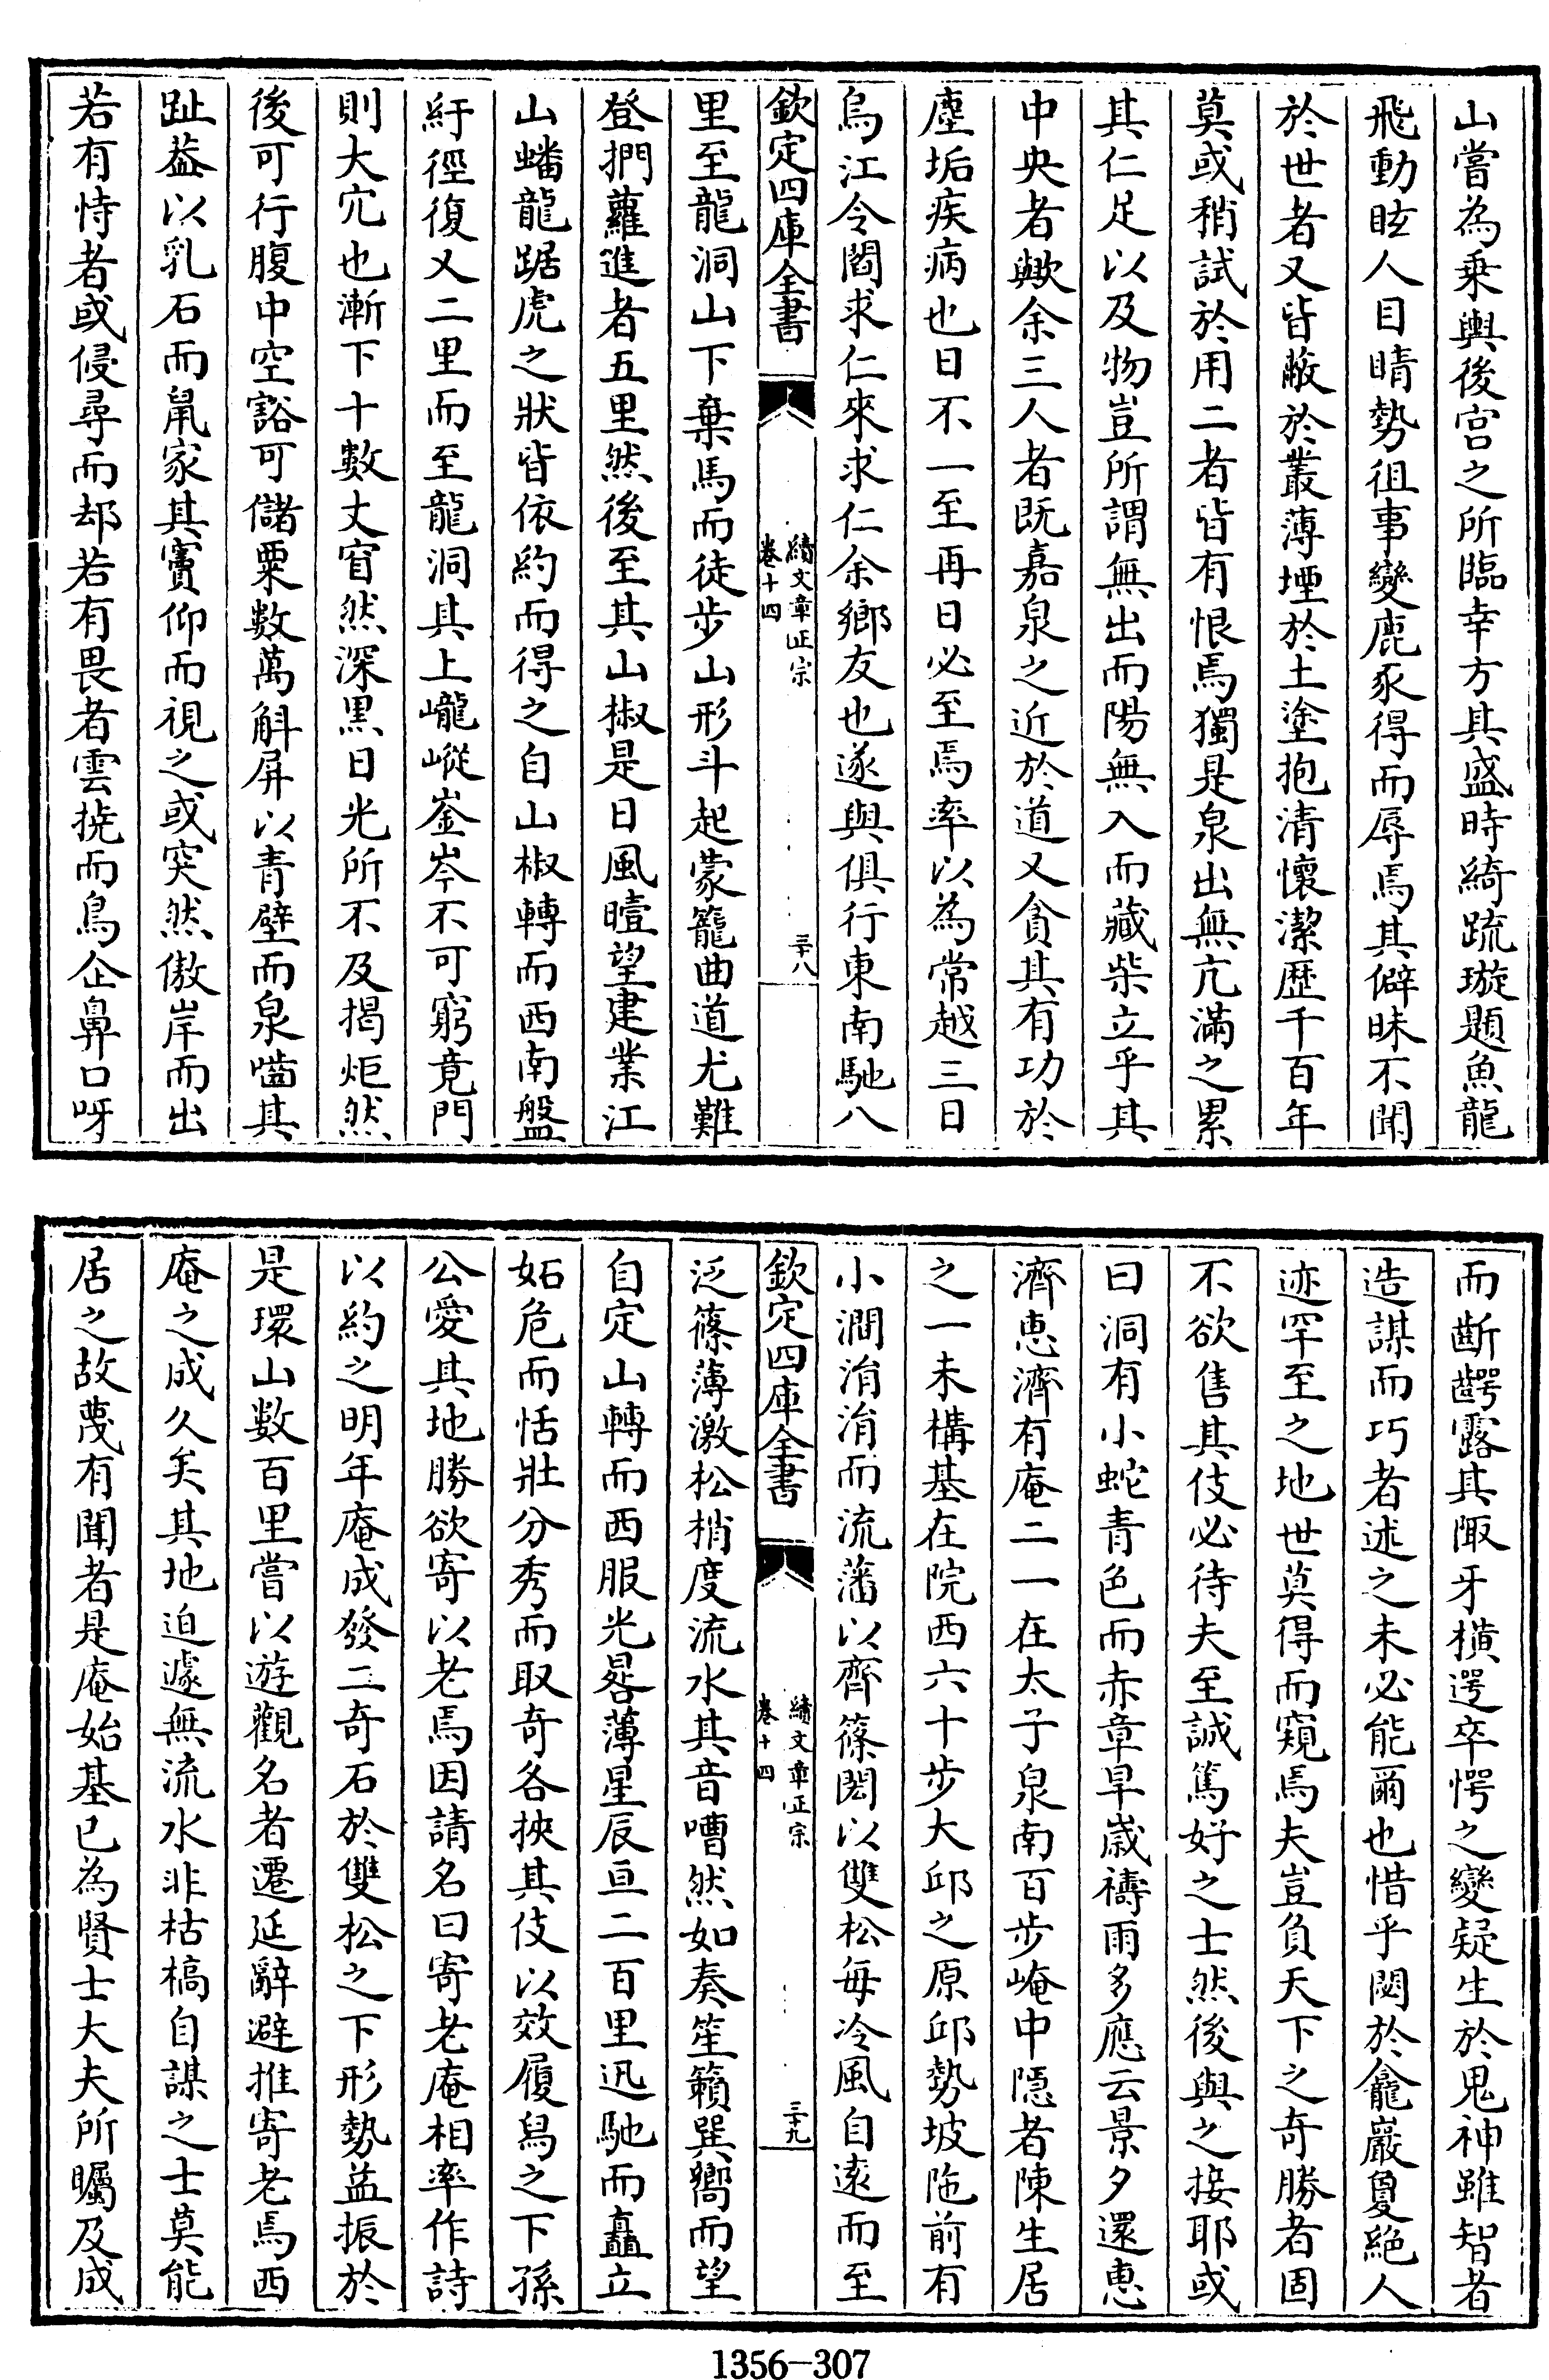 山嘗為乗輿後宫之所臨幸方其盛時綺疏璇題魚龍
飛動眩人目睛勢徂事變鹿豕得而辱焉其僻昧不聞
於世者又皆蔽於叢薄堙於土塗抱清懷潔歴千百年
莫或稍試於用二者皆有恨焉獨是泉出無亢滿之累
其仁足以及物豈所謂無出而陽無入而藏柴立乎其
中央者歟余三人者既嘉泉之近於道又貪其有功於
塵垢疾病也日不一至再日必至焉率以為常越三日
烏江令閻求仁來求仁余鄉友也遂與俱行東南馳八
欽定四庫全書
續文章正宗
卷十四
三十八
里至龍洞山下棄馬而徒步山形斗起蒙籠曲道尤難
登捫蘿進者五里然後至其山椒是日風曀望建業江
山蟠龍踞虎之狀皆依約而得之自山椒轉而西南盤
紆徑復又二里而至龍洞其上巃嵷崟岑不可窮竟門
則大宂也漸下十數丈窅然深黒日光所不及揭炬然
後可行腹中空豁可儲粟數萬斛屏以青壁而泉嚙其
趾葢以乳石而鼠家其竇仰而視之或突然傲岸而出
若有恃者或侵尋而却若有畏者雲撓而鳥企鼻口呀
而齗齶露其陬牙横遌卒愕之變疑生於鬼神雖智者
造謀而巧者述之未必能爾也惜乎閟於龕巖敻絶人
迹罕至之地世莫得而窺焉夫豈負天下之奇勝者固
不欲售其伎必待夫至誠篤好之士然後與之接耶或
曰洞有小蛇青色而赤章旱歲禱雨多應云景夕還惠
濟惠濟有庵二一在太子泉南百步崦中隠者陳生居
之一未構基在院西六十步大邱之原邱勢坡陁前有
小澗涓涓而流藩以齊篠閎以雙松每冷風自逺而至
欽定四庫全書
續文章正宗
卷十四
三十九
泛篠薄激松梢度流水其音嘈然如奏笙籟巽嚮而望
自定山轉而西服光晷薄星辰亘二百里迅馳而矗立
妬危而恬壯分秀而取奇各挾其伎以效履舄之下孫
公愛其地勝欲寄以老焉因請名曰寄老庵相率作詩
以約之明年庵成發二奇石於雙松之下形勢益振於
是環山數百里嘗以遊觀名者遷延辭避推寄老焉西
庵之成久矣其地迫遽無流水非枯槁自謀之士莫能
居之故蔑有聞者是庵始基已為賢士大夫所矚及成
1356-307